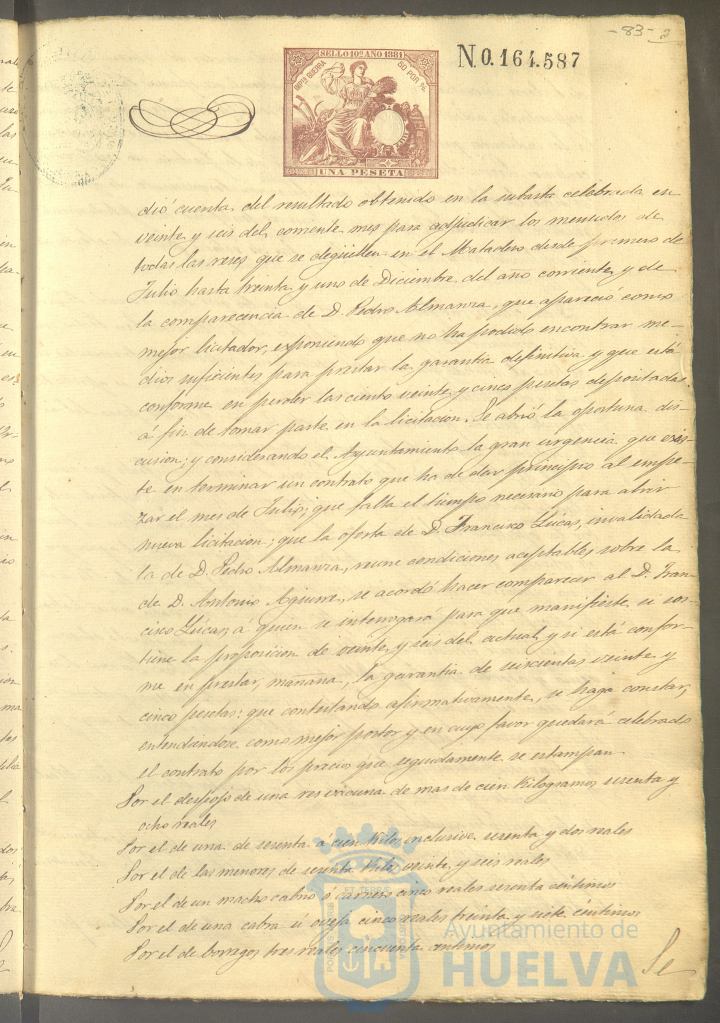 -83- 2
SELLO 10º AÑO 1881
IMPº GUERRA
50 POR %
UNA PESETA
N.0.164.587
dió cuenta del resultado obtenido en la subasta celebrada en
veinte y seis del corriente mes para adjudicar los menudos de
todas las reses que se degüellen en el Matadero desde primero de
Julio hasta treinta y uno de Diciembre del año corriente, y de
la comparecencia de D. Pedro Almanza, que apareció como
mejor licitador, exponiendo que no ha podido encontrar me-
dios suficientes para prestar la garantia definitiva y que está
conforme en perder las ciento veinte y cinco pesetas depositadas
á fin de tomar parte en la licitacion. Se abrió la oportuna dis-
cusion; y considerando el Ayuntamiento la gran urgencia que exis-
te en terminar un contrato que ha de dar principio al empe-
zar el mes de Julio; que falta el tiempo necesario para abrir
nueva licitacion; que la oferta de D. Francisco Lúcas, invalidada
la de D. Pedro Almanza, reune condiciones aceptables sobre la
de D. Antonio Aguirre, se acordó hacer comparecer al D. Fran-
cisco Lúcas, á quien se interrogará para que manifieste si sos-
tiene la proposicion de veinte y seis del actual y si está confor-
me en prestar, mañana, la garantia de seiscientas veinte y
cinco pesetas: que contestando afirmativamente, se haga constar,
entendiéndose como mejor postor y en cuyo favor quedará celebrado
el contrato por los precios que seguidamente se estampan.
Por el despojo de una res vacuna de mas de cien kilogramos sesenta y
ocho reales
Por el de una de sesenta á cien kilos inclusive, sesenta y dos reales
Por el de las menores de sesenta kilos, veinte y seis reales
Por el de un macho cabrio ó carnero cinco reales sesenta céntimos
Por el de una cabra ú oveja cinco reales treinta y siete céntimos
Por el de borregos tres reales cincuenta centimos
Se
Ayuntamiento de
HUELVA